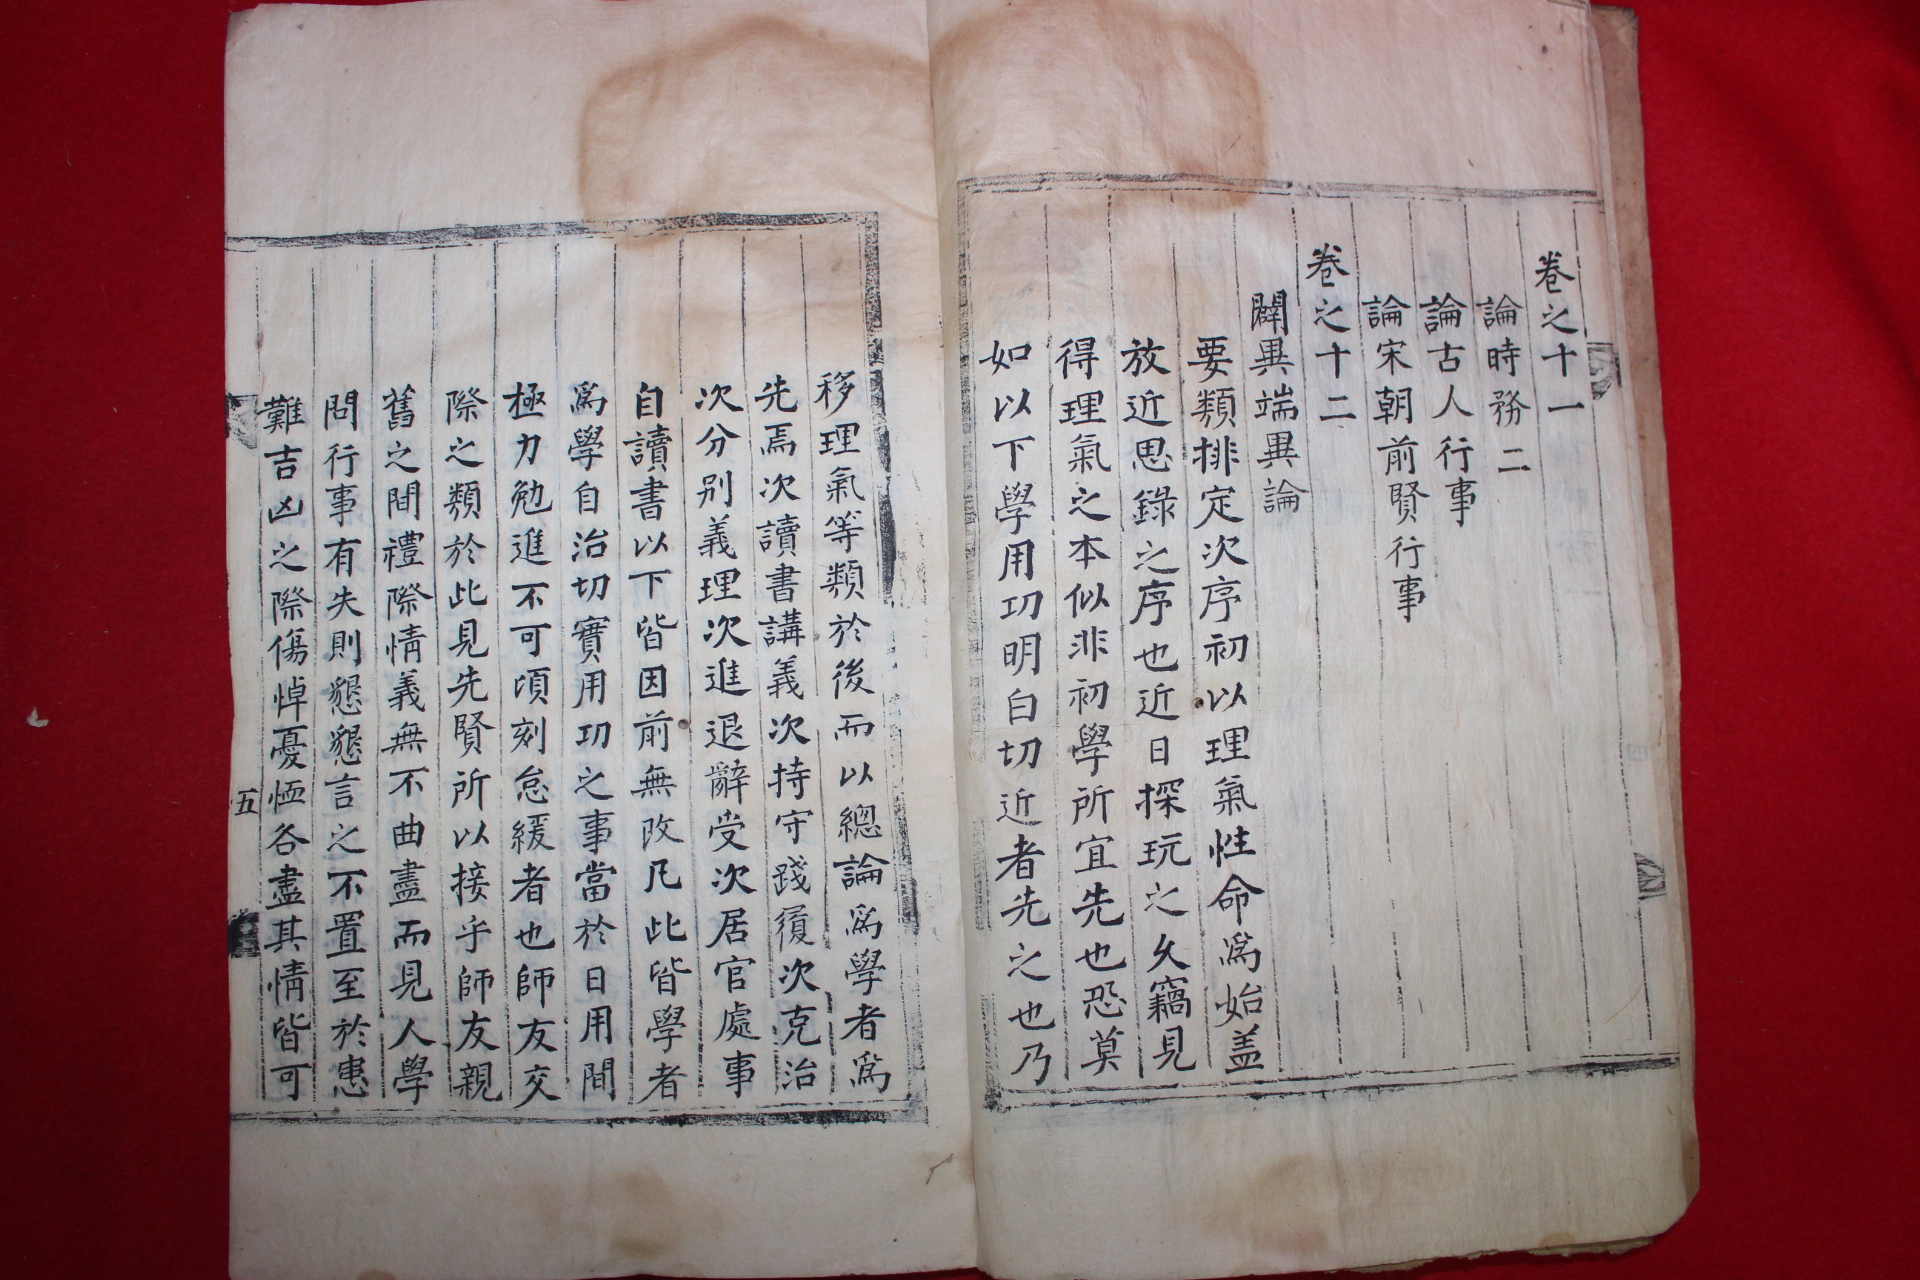 卷之十一
論時務二
論古人行事
論宋朝前賢行事
卷之十二
闢異端異論
要類排定次序初以理氣性命爲始盖
放近思錄之序也近日探玩之久竊見
得理氣之本似非初學所宜先也恐莫
如以下學用功明白切近者先之也乃
移理氣等類於後而以總論爲學者爲
先焉次讀書講義次持守踐履次克治
次分別義理次進退辭受次居官處事
自讀書以下皆因前無改凡此皆學者
爲學自治切實用功之事當於日用間
極力勉進不可頃刻怠緩者也師友交
際之類於此見先賢所以接乎師友親
舊之間禮際情義無不曲盡而見人學
問行事有失則懇懇言之不置至於患
難吉凶之際傷悼憂恤各盡其情皆可
五